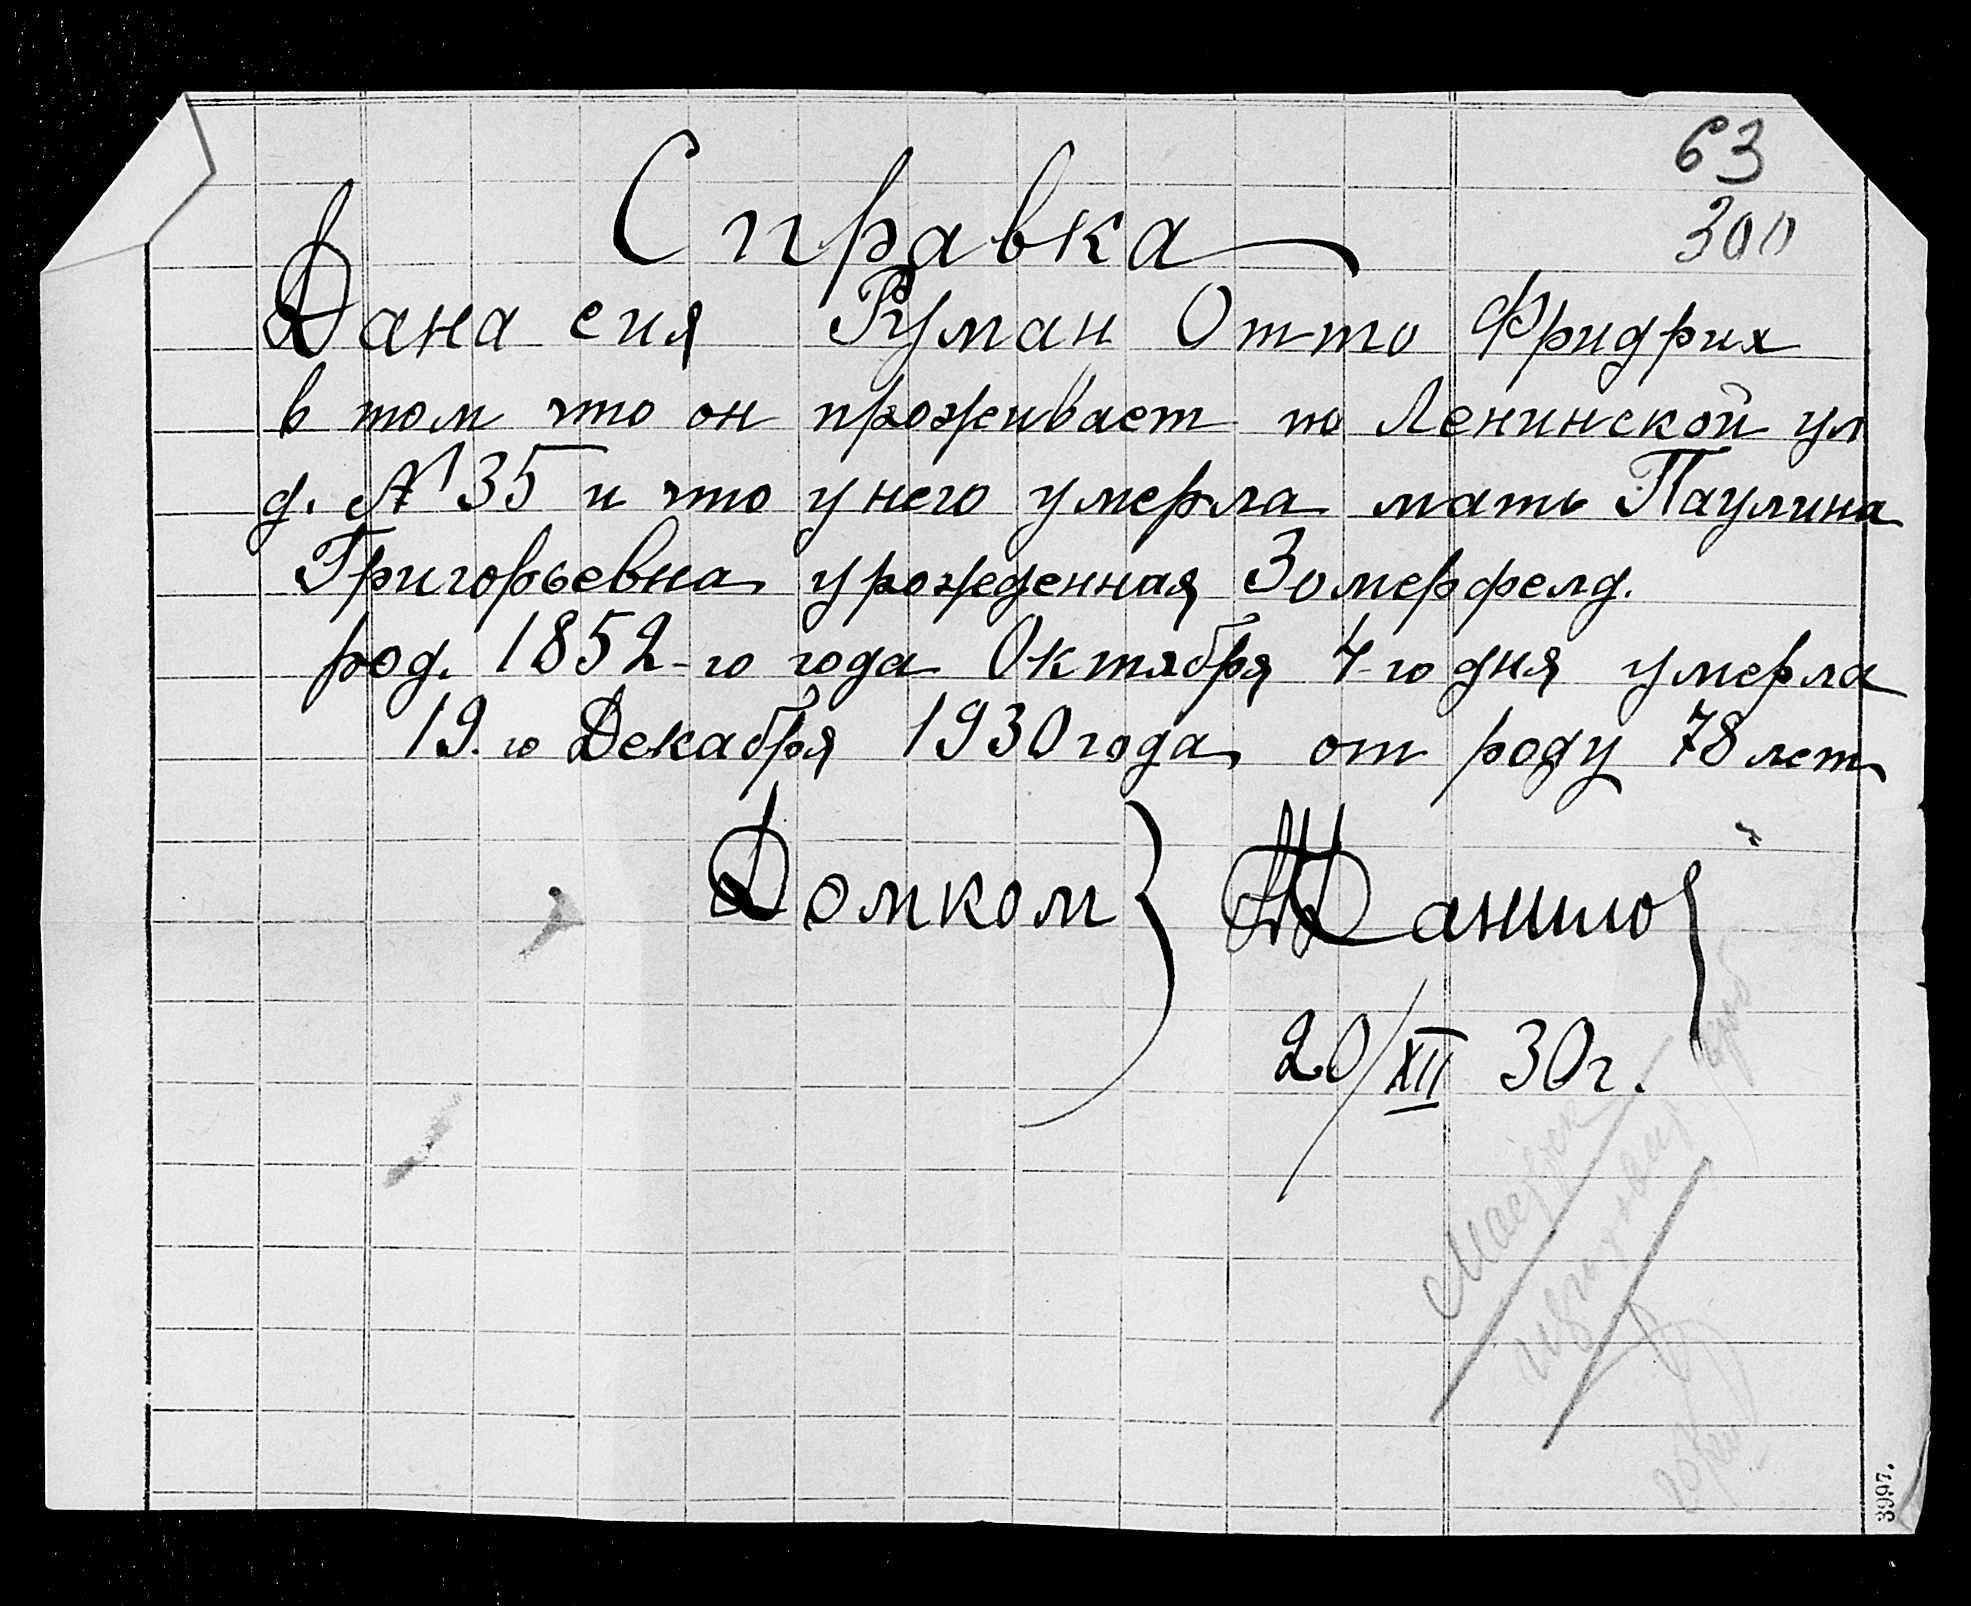 63
300
Справка
Дана сия Руман Отто Фридрих
в том что он проживает по Ленинской ул
д. № 35 и что у него умерла мать Паулина
Григорьевна урожденная Зомерфелд.
род. 1852-го года Октября 4-го дня умерла
19.го Декабря 1930 года от роду 78 лет
Домком
20/XII 30г.
3997.